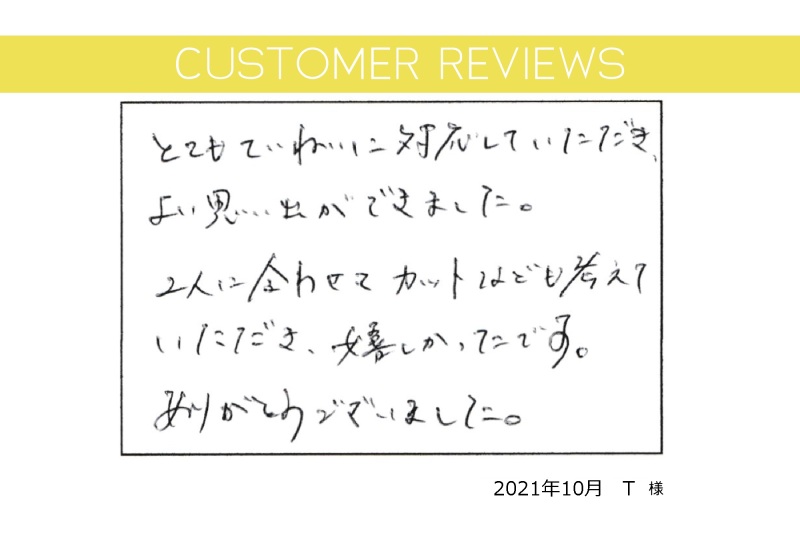 CUSTOMER REVIEWS
とてもていねいに対応していただき、
よい思い出ができました。
2人に合わせてカットなども考えて
いただき、嬉しかったです。
ありがとうございました。
2021年10月 T 様